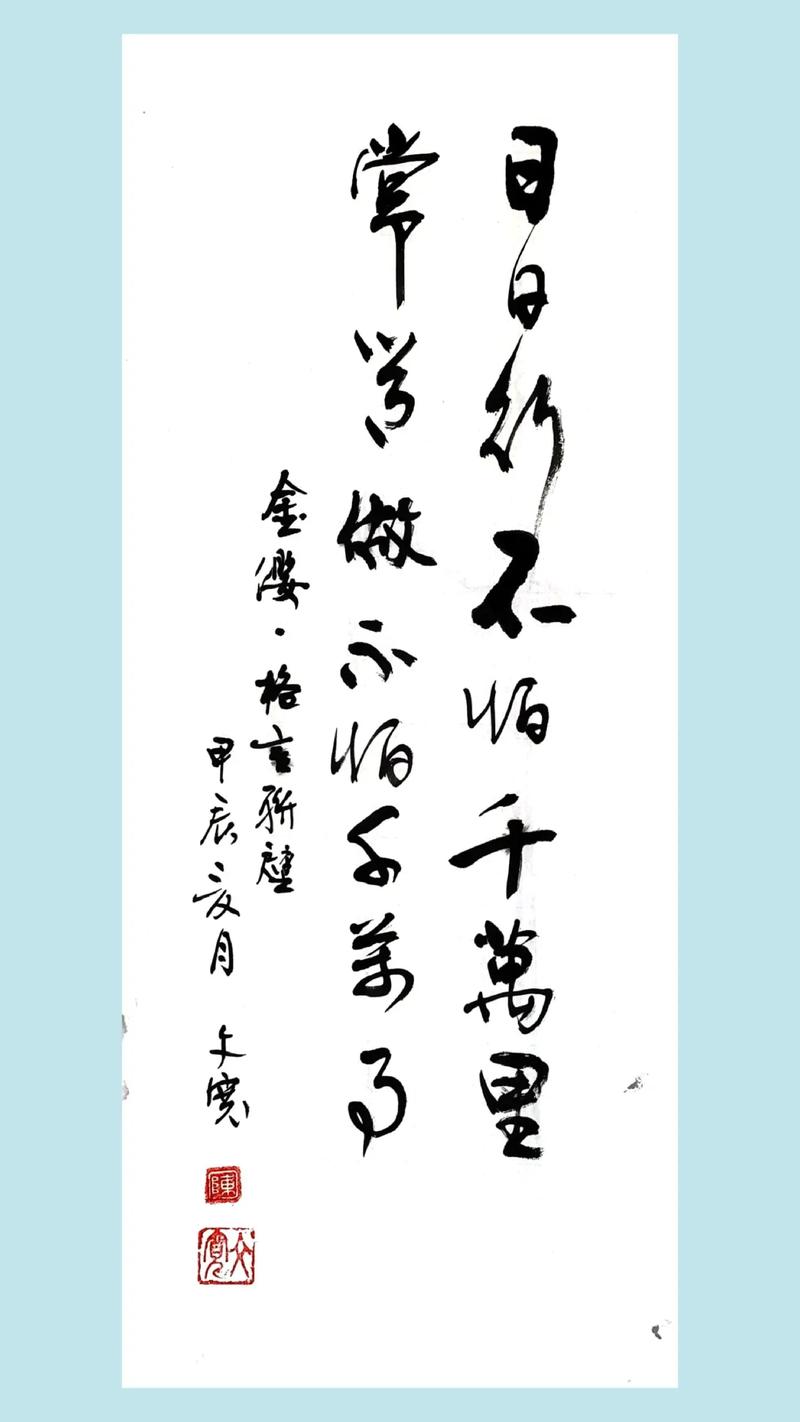 日日行不怕千萬里
常常做不怕千萬事
金纓·格言聯璧
甲辰夏月 文寬
陳
文寬